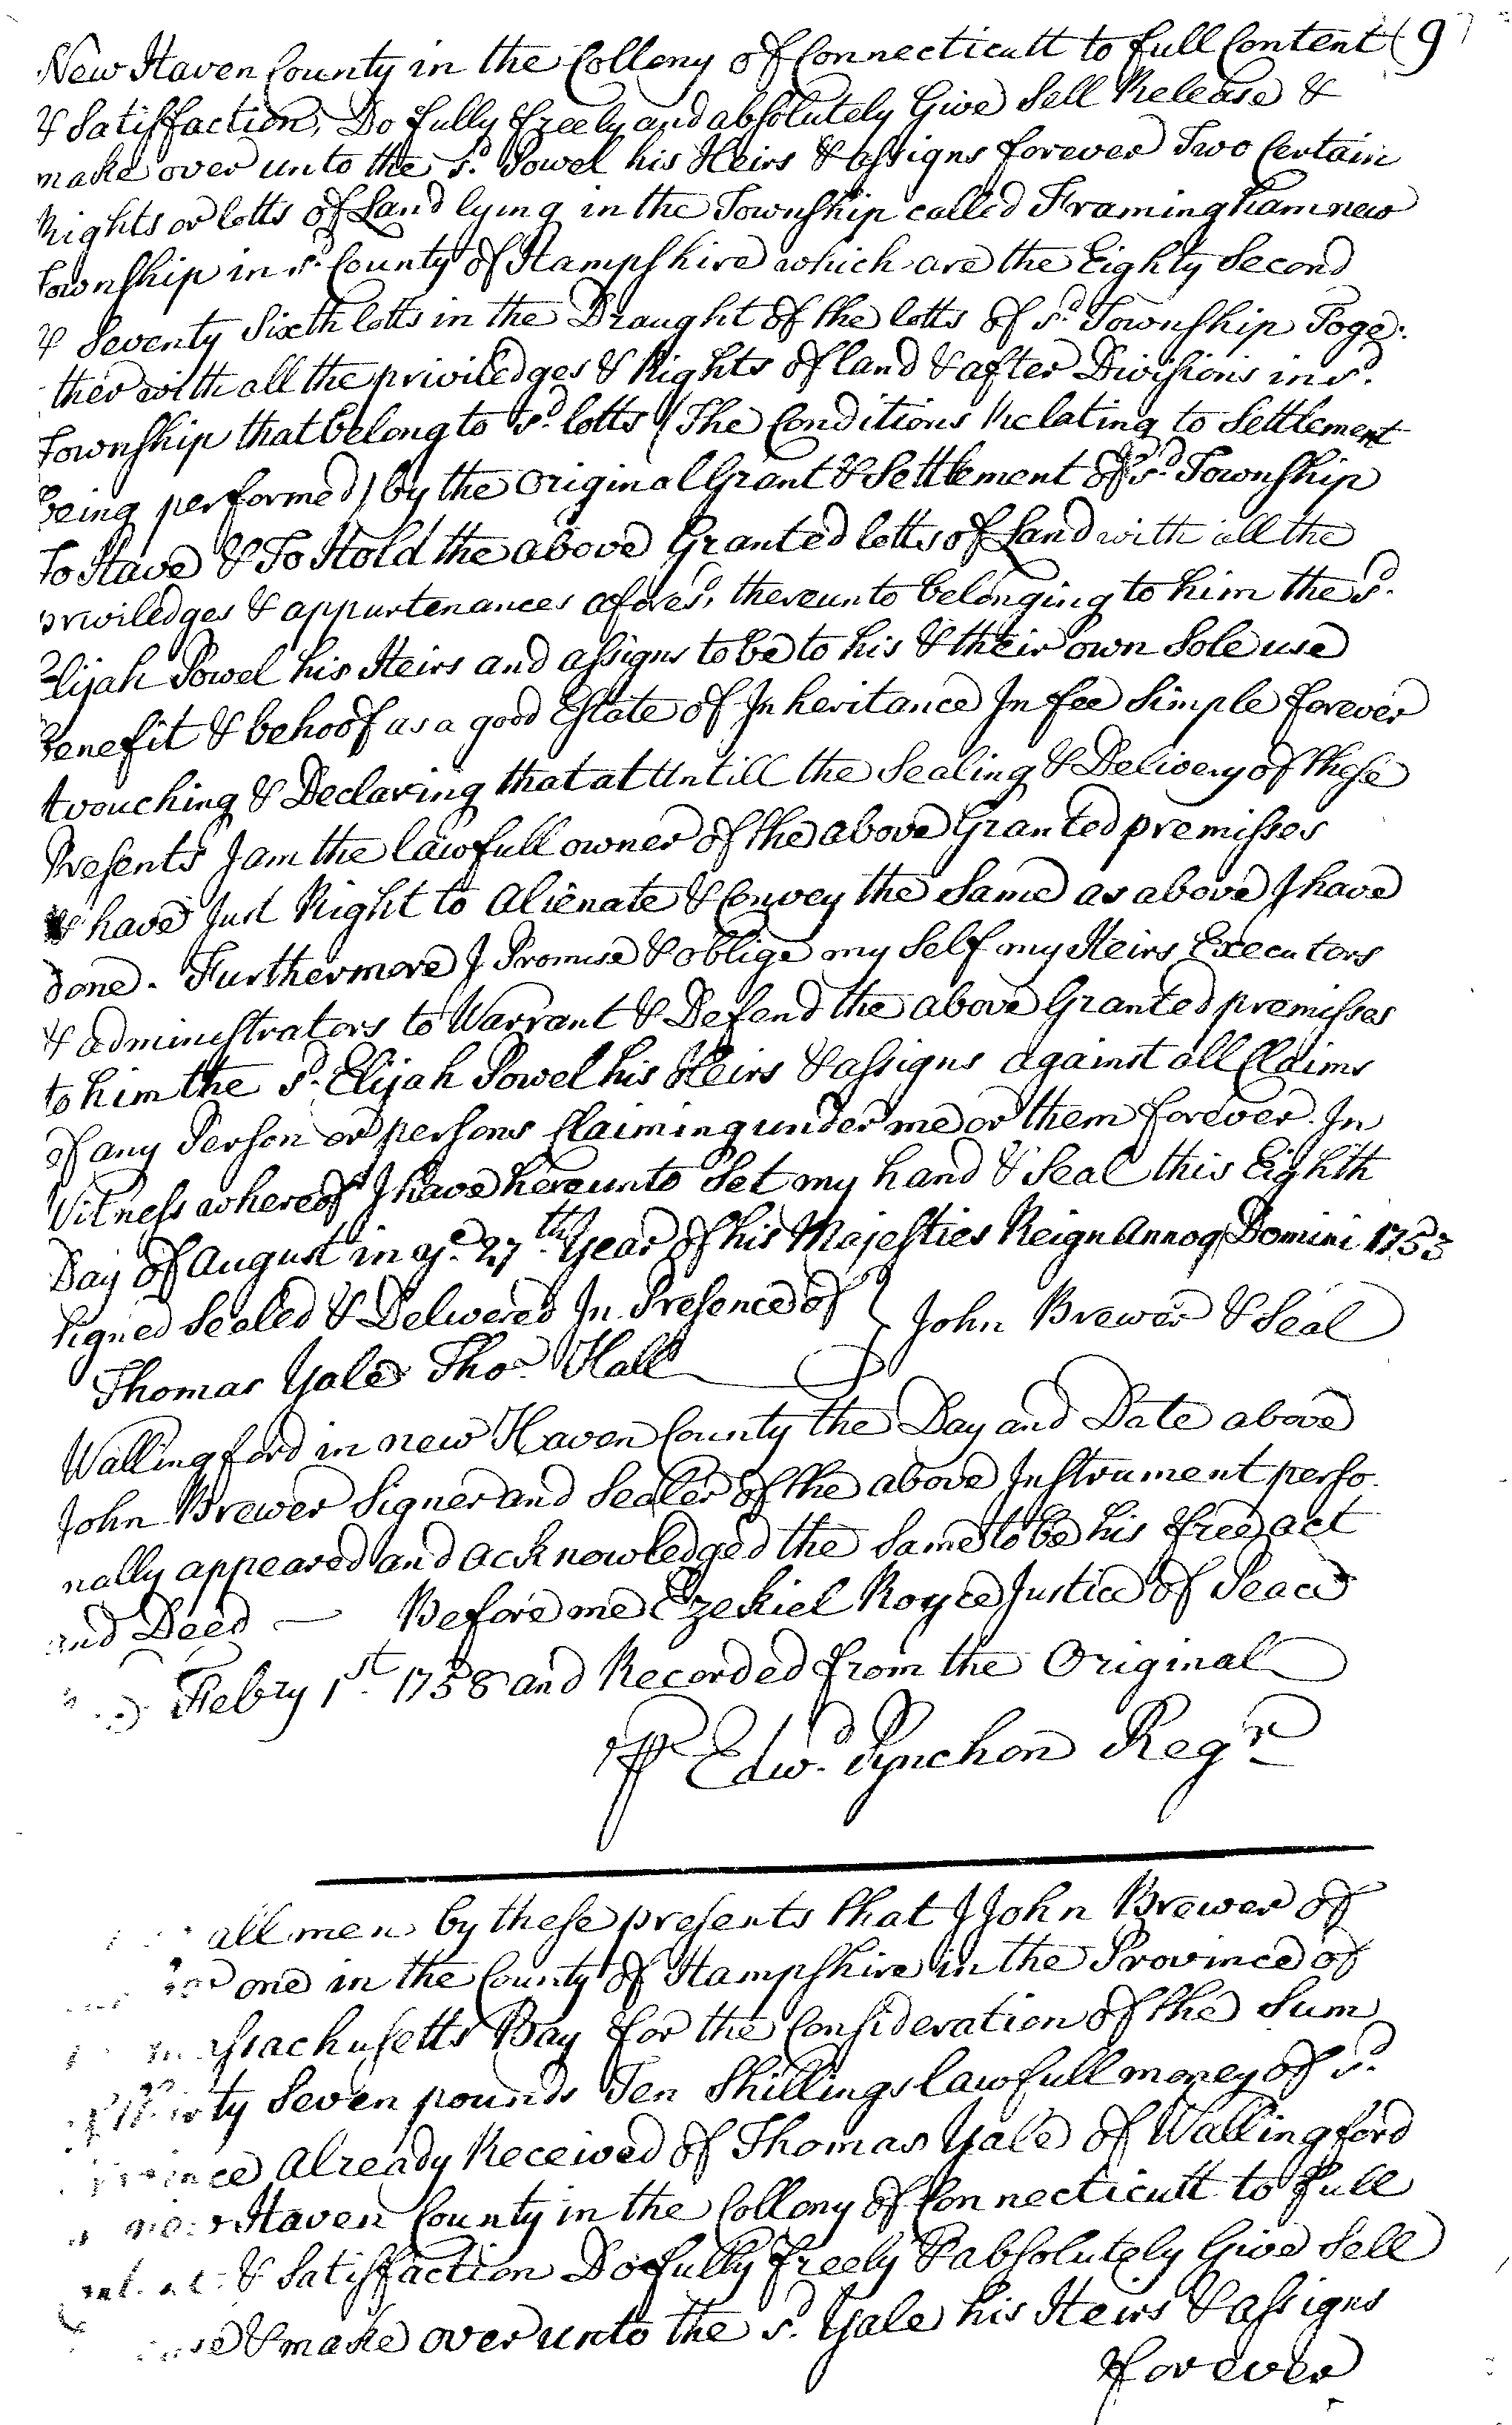 New Haven County in the Collony of Connecticutt to full Content (9
& Satisfaction, Do fully freely and absolutely Give Sell Release &
make over unto the sd. Powel his Heirs & assigns forever Two Certain
Rights or lotts of Land lying in the Township called Framingham new
Township in sd. County of Hampshire which are the Eighty Second
& Seventy Sixth lotts in the Draught of the lotts of sd. Township Toge:
ther with all the priviledges & Rights of land & after Divisions in sd.
Township that belong to sd. lotts (The Conditions Relating to Settlement
being performed) by the Original Grant & Settlement of sd. Township
To Have & To Hold the above Granted lotts of Land with all the
priviledges & appurtenances aforesd, thereunto belonging to him the sd.
Elijah Powel his Heirs and assigns to be to his & their own Sole use
Benefit & behoof as a good Estate of Inheritance In fee Simple forever
Avouching & Declaring that at Untill the Sealing & Delivery of these
Presents I am the lawfull owner of the above Granted premisses
& have Just Right to Alienate & Convey the Same as above I have
done. Furthermore I Promise & oblige my Self my Heirs Executors
& administrators to Warrant & Defend the above Granted premisses
to him the sd. Elijah Powel his Heirs & assigns against all Claims
of any Person or persons Claiming under me or them forever. In
Witness whereof I have hereunto Set my hand & Seal this Eighth
Day of August in ye. 27th. Year of his Majesties Reign Annoq Domini 1753
Signed Sealed & Delivered In Presence of } John Brewer & Seal
Thomas Yale Tho. Hall
Wallingford in new Haven County the Day and Date above
John Brewer Signer and Sealer of the above Instrument perso-
nally appeared and acknowledged the Same to be his free act
and Deed — Before me Ezekiel Royce Justice of Peace
Febry 1st. 1758 and Recorded from the Original
P Edwd. Pynchon Regr
all men by these presents that I John Brewer of
one in the County of Hampshire in the Province of
ssachusetts Bay for the Consideration of the Sum
of Thirty Seven pounds Ten Shillings lawfull money of sd.
Province Already Received of Thomas Yale of Wallingford
new Haven County in the Collony of Connecticutt to full
& Satisfaction Do fully freely & absolutely Give Sell
& make over unto the sd. Yale his Heirs & assigns
forever